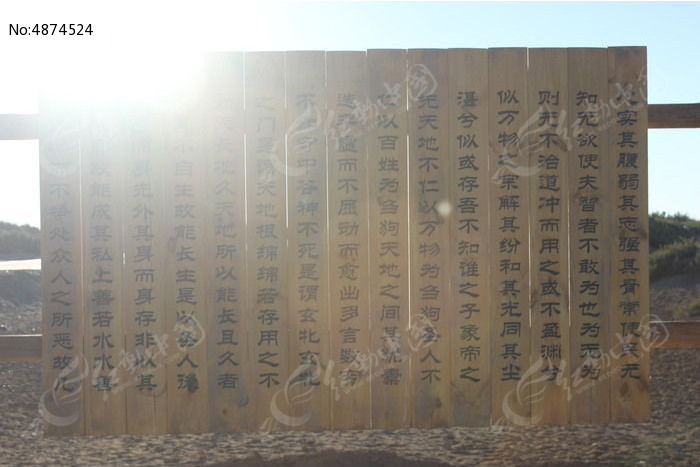 No:4874524
心实其腹弱其志强其骨常使民无
知无欲使夫智者不敢为也为无为
则无不治道冲而用之或不盈渊兮
似万物之宗解其纷和其光同其尘
湛兮似或存吾不知谁之子象帝之
先天地不仁以万物为刍狗圣人不
仁以百姓为刍狗天地之间其犹橐
籥虚而不屈动而愈出多言数穷
不守中谷神不死是谓玄牝玄牝
之门是谓天地根绵绵若存用之不
天长地久天地所以能长且久者
不自生故能长生是以圣人后
身先外其身而身存非以其
故能成其私上善若水水善
不争处众人之所恶故几